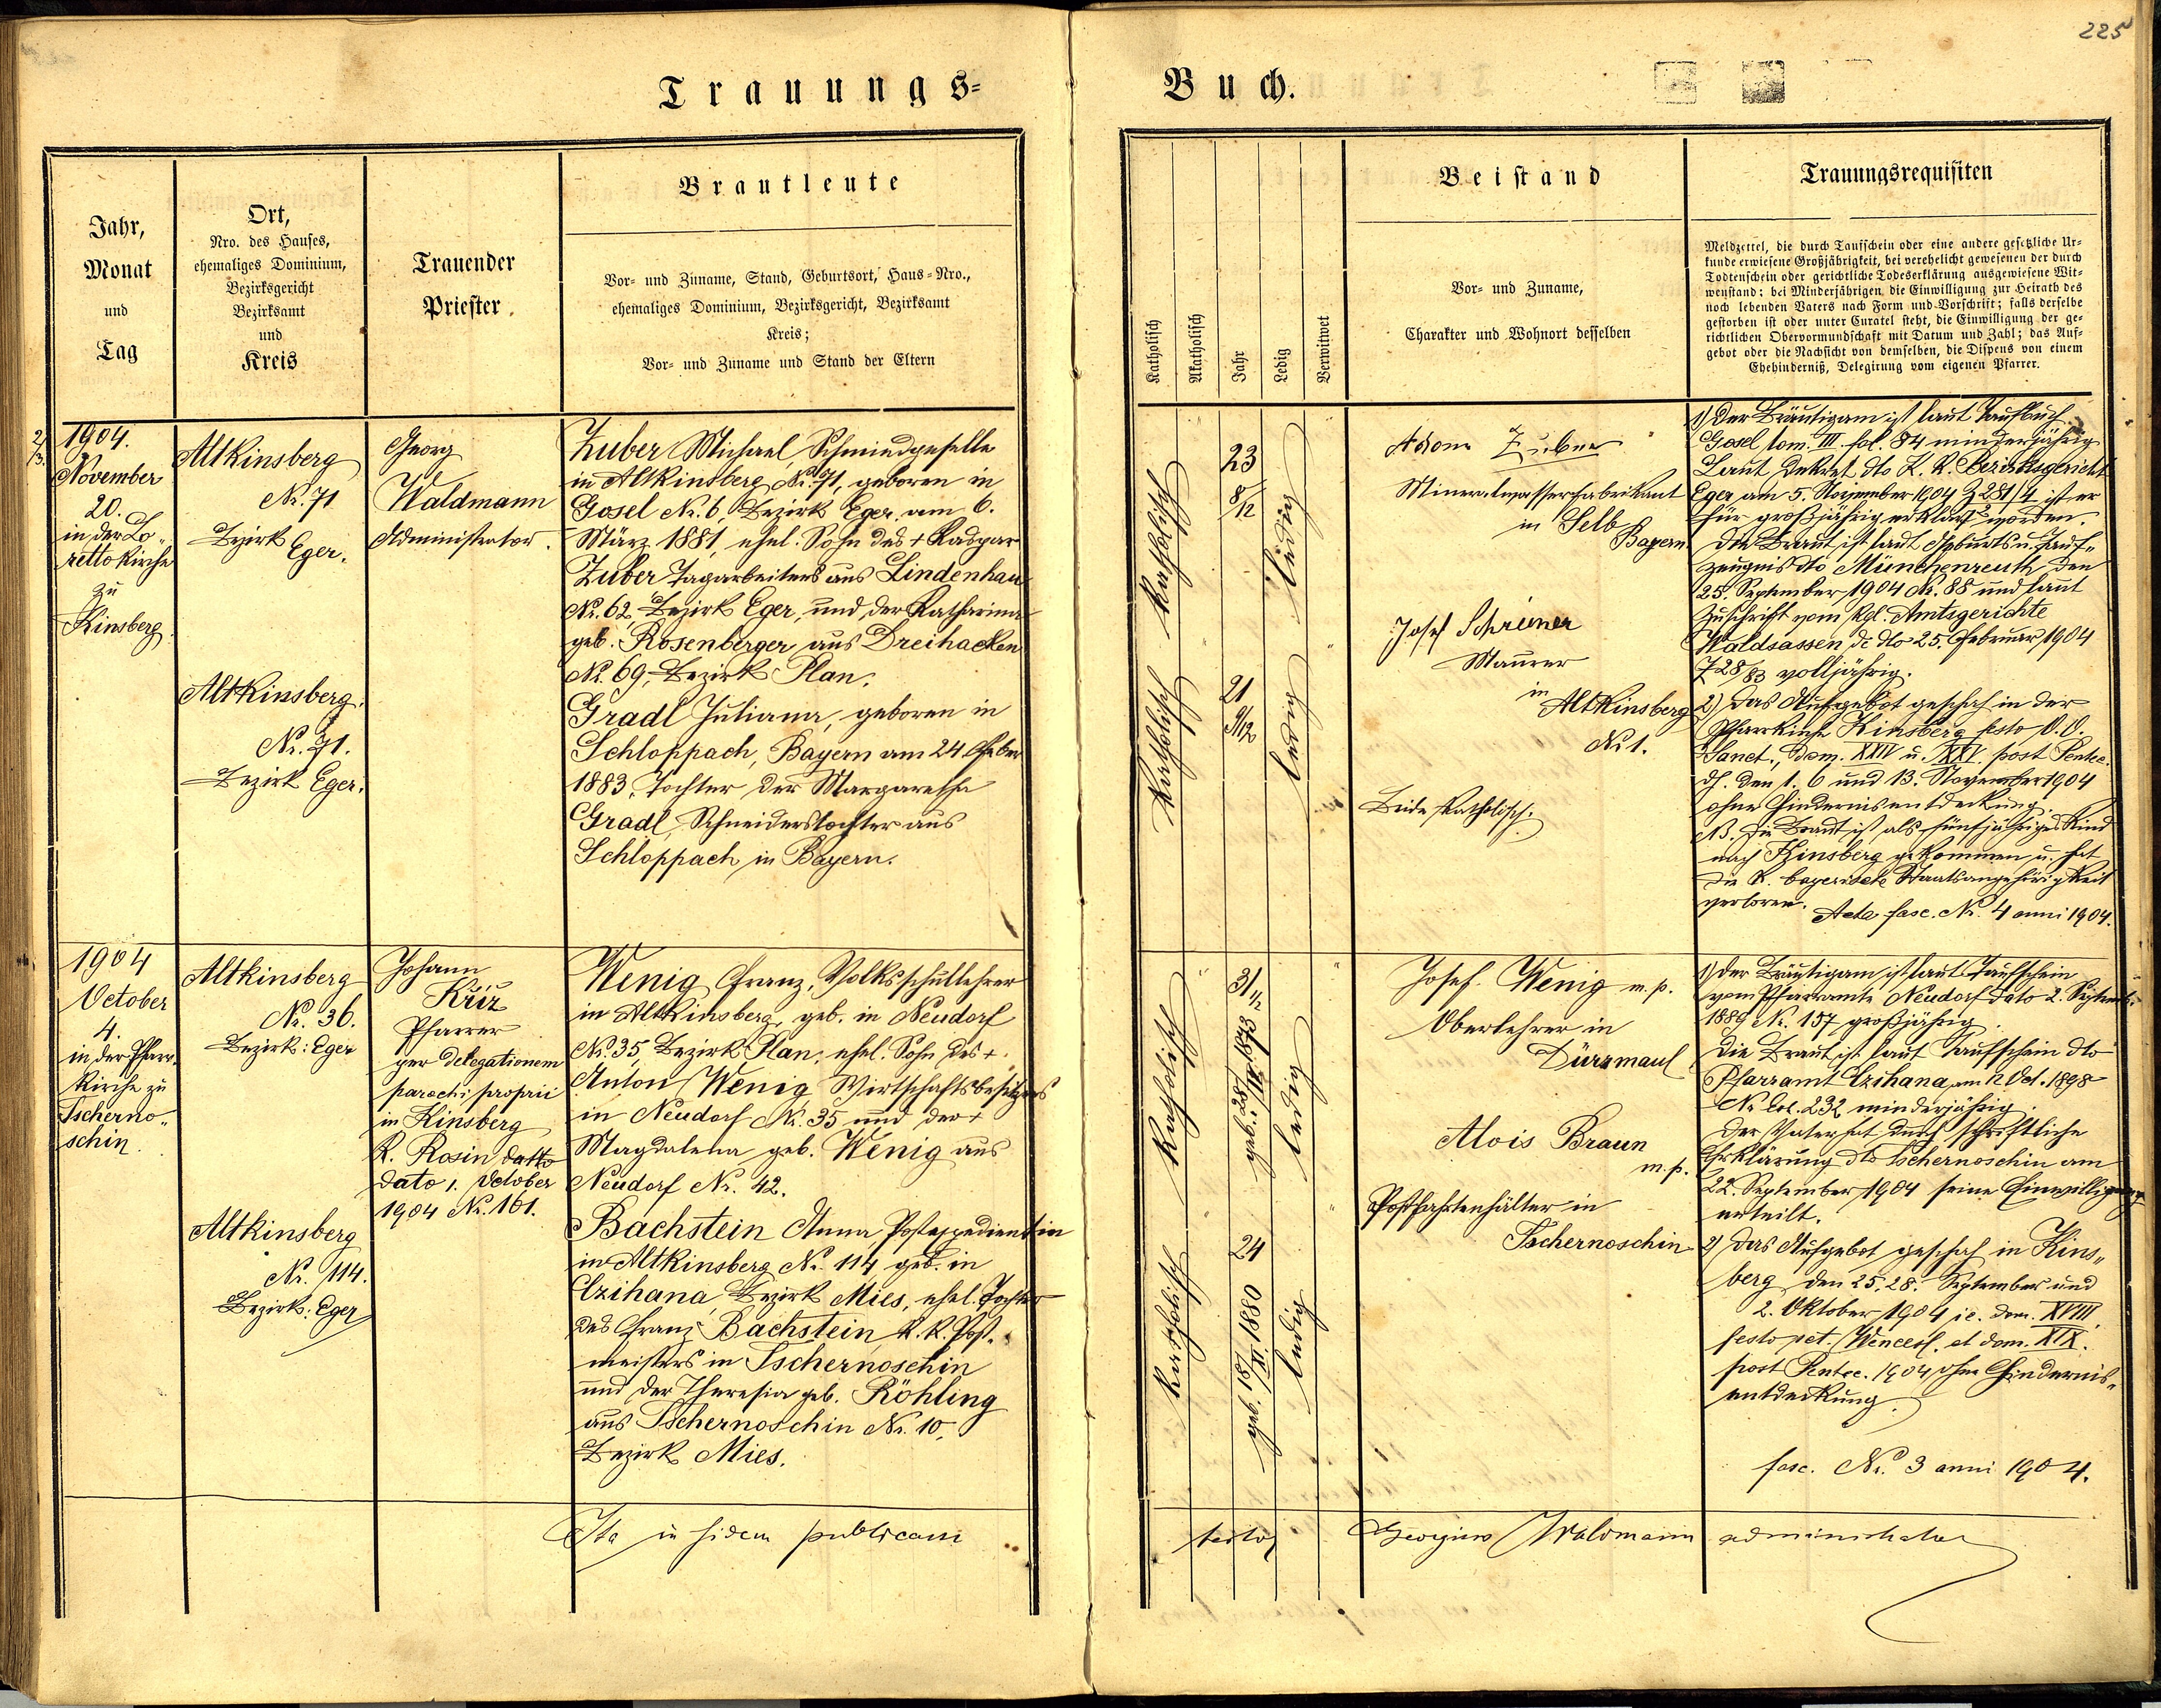 225
Trauungs-
Buch.
Jahr,
Monat
und
Tag
Ort,
Nro. des Hauses,
ehemaliges Dominium,
Bezirksgericht
Bezirksamt
und
Kreis
Trauender
Priester
Brautleute
Vor- und Zuname, Stand, Geburtsort, Haus-Nro.,
ehemaliges Dominium, Bezirksgericht, Bezirksamt
Kreis;
Vor- und Zuname und Stand der Eltern
Katholisch
Akatholisch
Jahr
Ledig
Verwitwet
Beistand
Vor- und Zuname,
Charakter und Wohnort desselben
Trauungsrequisiten
Meldzettel, die durch Taufschein oder eine andere gesetzliche Ur-
kunde erwiesene Großjährigkeit, bei verehelicht gewesenen der durch
Todtenschein oder gerichtliche Todeserklärung ausgewiesene Wit-
wenstand; bei Minderjährigen die Einwilligung zur Heirath des
noch lebenden Vaters nach Form und Vorschrift; falls derselbe
gestorben ist oder unter Curatel steht, die Einwilligung der ge-
richtlichen Obervormundschaft mit Datum und Zahl; das Auf-
gebot oder die Nachsicht von demselben, die Dispens von einem
Ehehinderniß, Delegirung vom eigenen Pfarrer.
1904.
November
20.
in der Lo-
rettokirche
zu
Kinsberg.
Altkinsberg
Nr. 71
Bezirk Eger.
Altkinsberg.
Nr. 71.
Bezirk Eger.
Georg
Waldmann
Administrator.
Zuber Michael, Schmiedgeselle
in Altkinsberg Nr. 71, geboren in
Gosel Nr. 6, Bezirk Eger, am 6.
März 1881, ehel. Sohn des + Kaspar
Zuber Tagarbeiters aus Lindenhau
Nr. 62, Bezirk Eger, und der Katharina
geb. Rosenberger aus Dreihacken
Nr. 69, Bezirk Plan.
Gradl Juliana, geboren in
Schloppach, Bayern am 24 Feber
1883, Tochter der Margaretha
Gradl, Schneiderstochter aus
Schloppach in Bayern.
Katholisch
23
8/12
ledig
Katholisch
21
9/12
ledig
Adam Zuber
Mineralwasserfabrikant
in Selb
Bayern
Josef Schreiner
Maurer
in
Altkinsberg
Nr. 1.
Beide katholisch.
1) Der Bräutigam ist laut Taufbuch
Gosel tom. III. fol. 84 minderjährig
Laut Dekret dto K. K. Bezirksgericht
Eger am 5. November 1904 Z 281/4 ist er
für großjährig erklärt worden.
Die Braut ist laut Geburts u. Tauf-
zeugnis dto Münchenreuth den
25. September 1904 Nr. 88 und laut
Zuschrift vom Kgl. Amtsgerichte
Waldsassen de dto 25. Februar 1904
Z 28/83 volljährig.
2) Das Aufgebot geschah in der
Pfarrkirche Kinsberg festo O. O.
Sanct., Dom. XXIV u. XXV. post Pentec.
d. h. den 1. 6 und 13. November 1904
ohne Hindernisentdeckung.
NB. Die Braut ist als fünfjähriges Kind
nach Kinsberg gekommen u. hat
die k. bayerische Staatsangehörigkeit
verloren.
Acta fasc. Nr. 4 anni 1904.
1904
October
4.
in der Pfarr-
kirche zu
Tscherno-
schin.
Altkinsberg
Nr. 36.
Bezirk: Eger
Altkinsberg
Nr. 114.
Bezirk: Eger
Johann
Křiz
Pfarrer
per delegationem
parochi proprii
in Kinsberg
K. Rosin datto
dato 1. October
1904 Nr. 161.
Wenig Franz, Volksschullehrer
in Altkinsberg, geb. in Neudorf
Nr. 35, Bezirk Plan, ehel. Sohn des +
Anton Wenig Wirtschaftsbesitzers
in Neudorf Nr. 35 und der +
Magdalena geb. Wenig aus
Neudorf Nr. 42.
Bachstein Anna Postexpedientin
in Altkinsberg Nr. 114 geb. in
Czihana, Bezirk Mies, ehel. Tochter
des Franz Bachstein, k. k. Post-
meisters in Tschernoschin
und der Theresia geb. Röhling
aus Tschernoschin Nr. 10,
Bezirk Mies.
Katholisch
31 1/2
geb. 28/III. 1873
ledig
Katholisch
24
geb. 18/XI. 1880
ledig
Josef Wenig m. p.
Oberlehrer in
Dürrmaul
Alois Braun
m. p.
Postfahrtenhälter in
Tschernoschin
1) Der Bräutigam ist laut Taufschein
vom Pfarramte Neudorf dato 2. Septemb.
1889 Nr. 157 großjährig.
Die Braut ist laut Taufschein dto
Pfarramt Czihana am 12 Oct. 1898
Nr. 232 minderjährig.
Der Vater hat durch schriftliche
Erklärung dto Tschernoschin am
22. September 1904 seine Einwilligung
erteilt.
2) Das Aufgebot geschah in Kins-
berg den 25. 28. September und
2. Oktober 1904 i.e. dom. XVIII.
festo pct. Wencesl. et dom. XIX.
post Pentec. 1904 ohne Hindernis-
entdeckung.
fasc. Nr. 3 anni 1904.
Ita in fidem publicam
testor
Georgius Waldmann
administrator